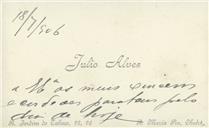 18/7/906
Julio Alves
a Vª os meus sinceros
e cordeaes parabens pelo
dia de hoje
R. Jardim do Tabaco,
R. Maria Pia,